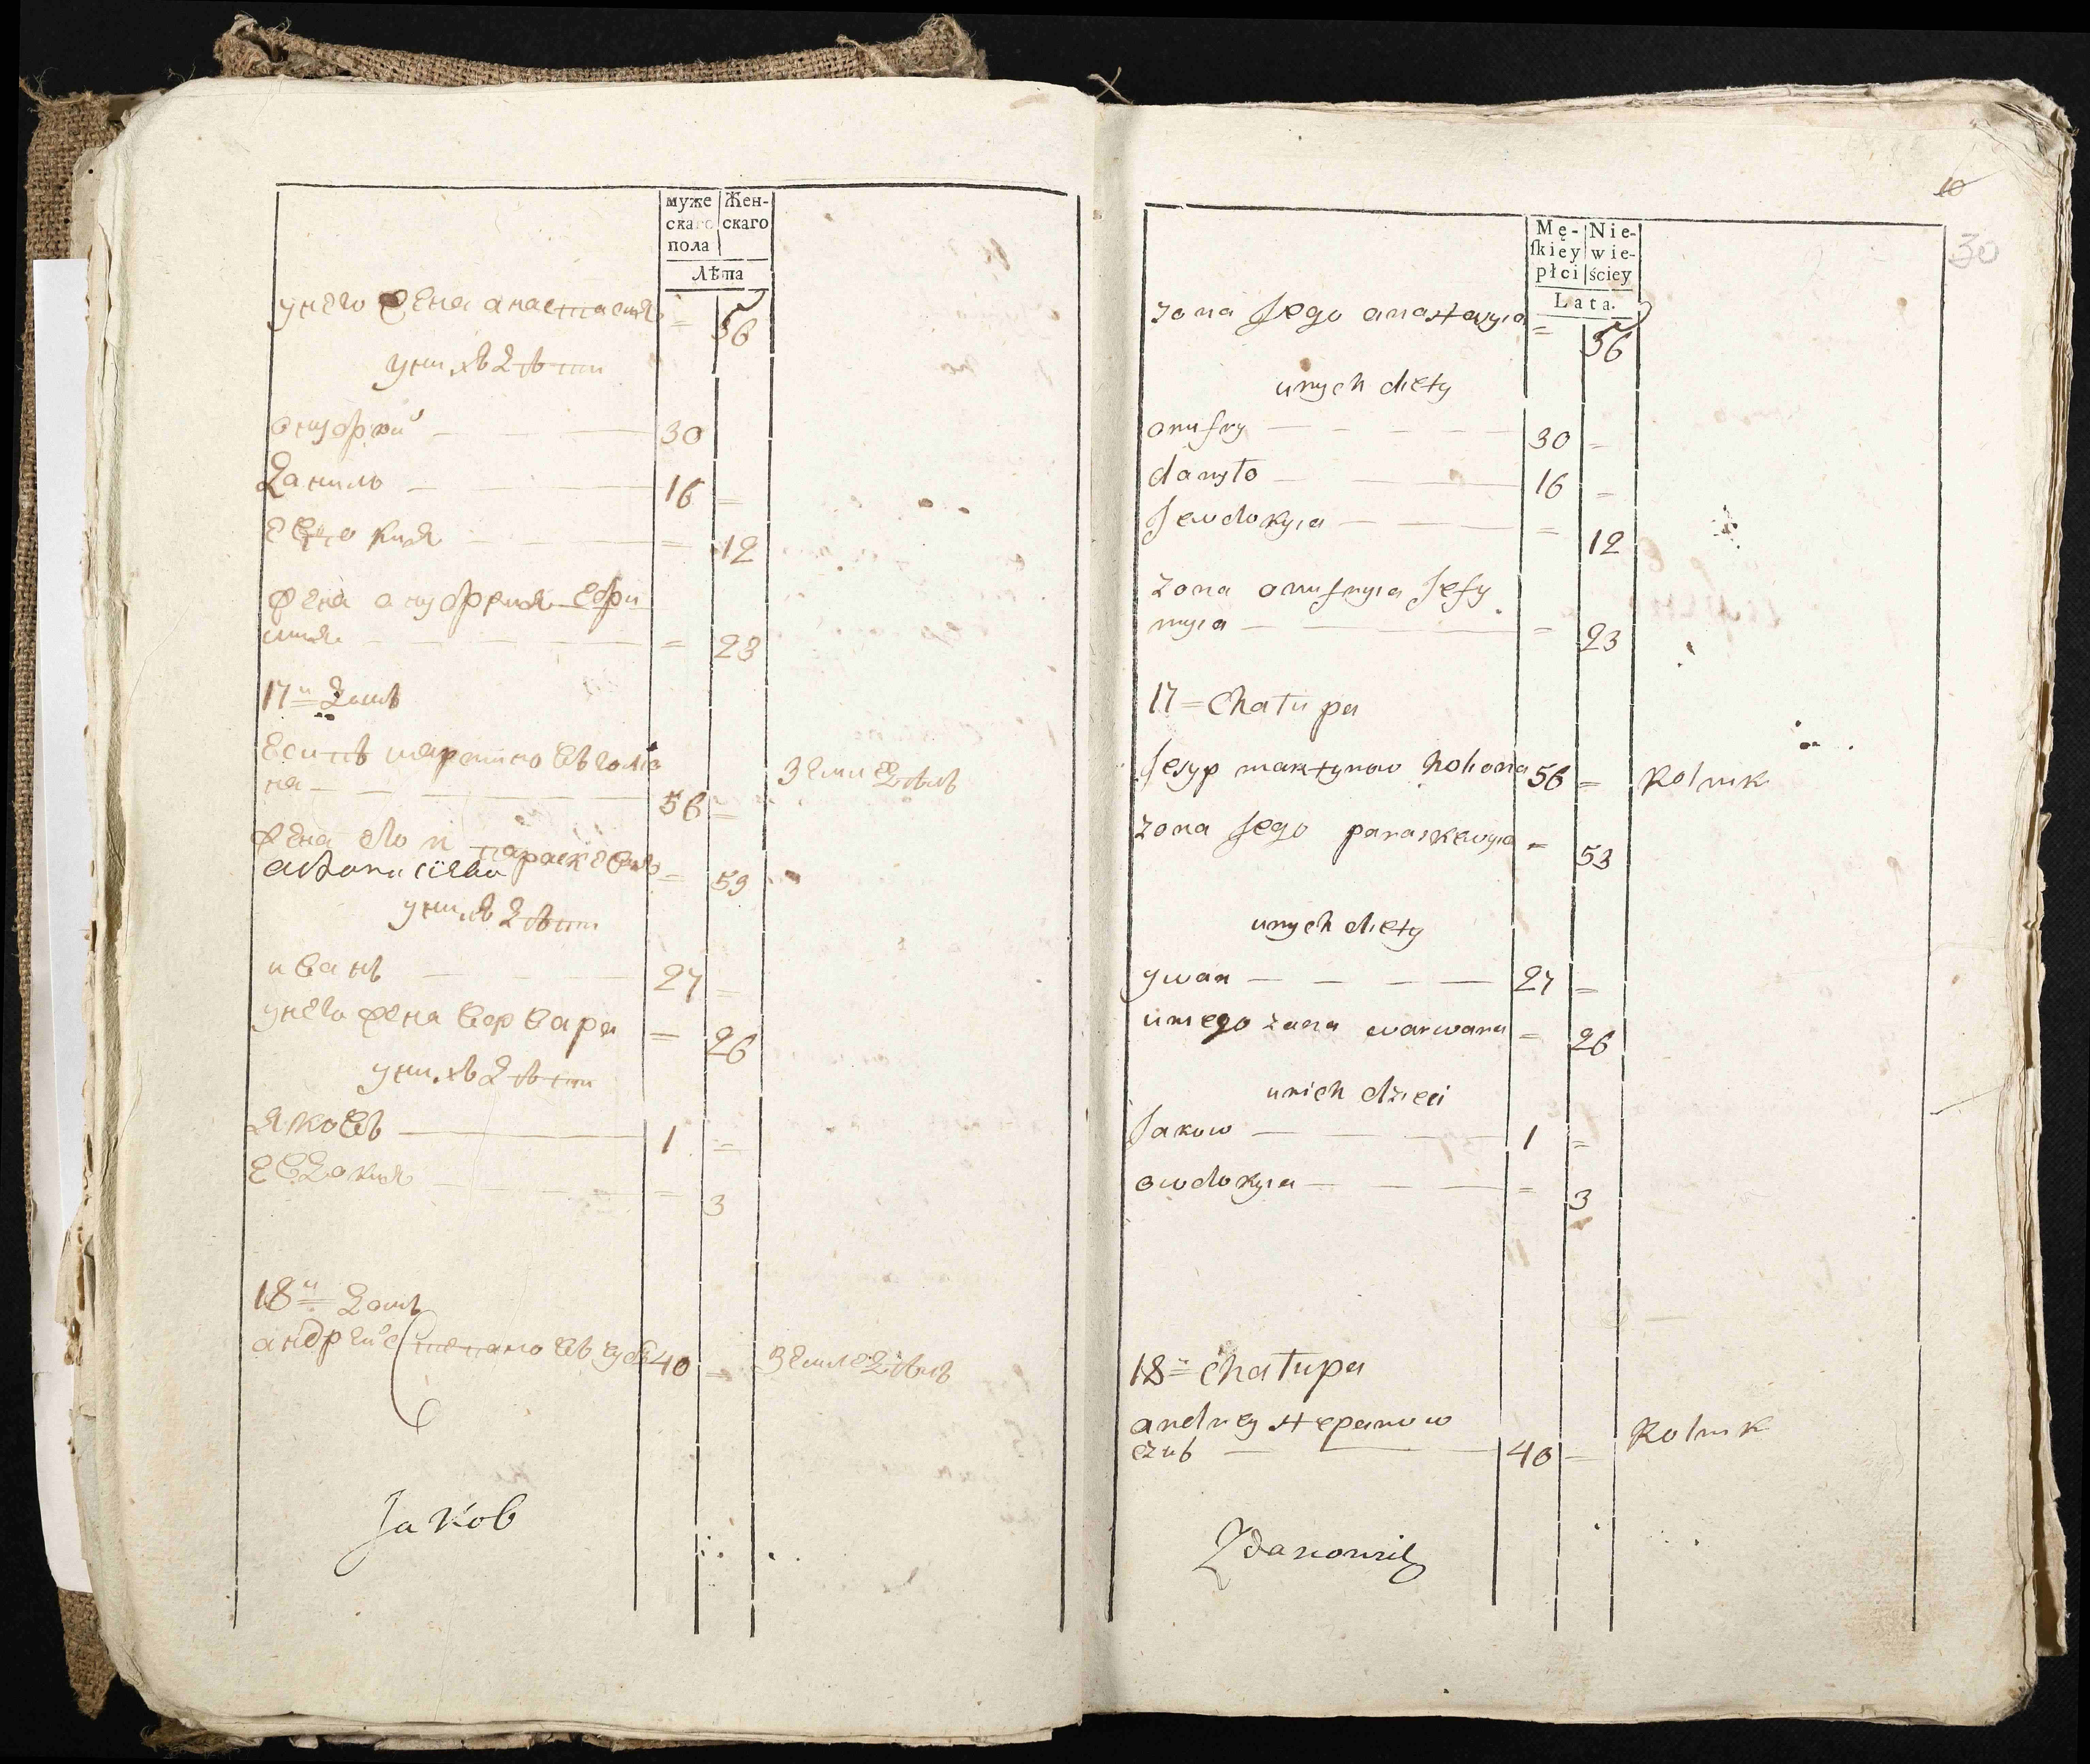 муже Жен-
скаго скаго
пола
Лѣта
у него жена анастасия = 56
у нихъ дѣти
онуфрий 30
Данило 16 =
евдокия = 12
жена онуфрия ефи
мия = 23
17й Домъ
есипъ мартиновъ голио
на 56 = Земледѣлъ
жена его параскевия = 53
у нихъ дѣти
иванъ 27 =
у него жена варвара = 26
у нихъ дѣти
яковъ 1 =
евдокия = 3
18й Домъ
андрей степановъ чубъ 40 = Земледѣлъ
Jakob
10
30
Mę- Nie-
ſkiey wie-
płci ściey
Lata.
zona Jego anastazyia = 56
unych diety
onufry 30 =
danyło 16 =
Jewdokyia = 12
zona onufryia Jefy
myia = 23
17 = Chałupa
Jesyp martynow holiona 56 = Rolnik
zona Jego paraskewyia = 53
unych diety
ywan 27 =
uniego zona warwara = 26
unich dzieci
Jakow 1 =
owdokyia = 3
18 = Chałupa
andrey stepanow
czub 40 = Rolnik